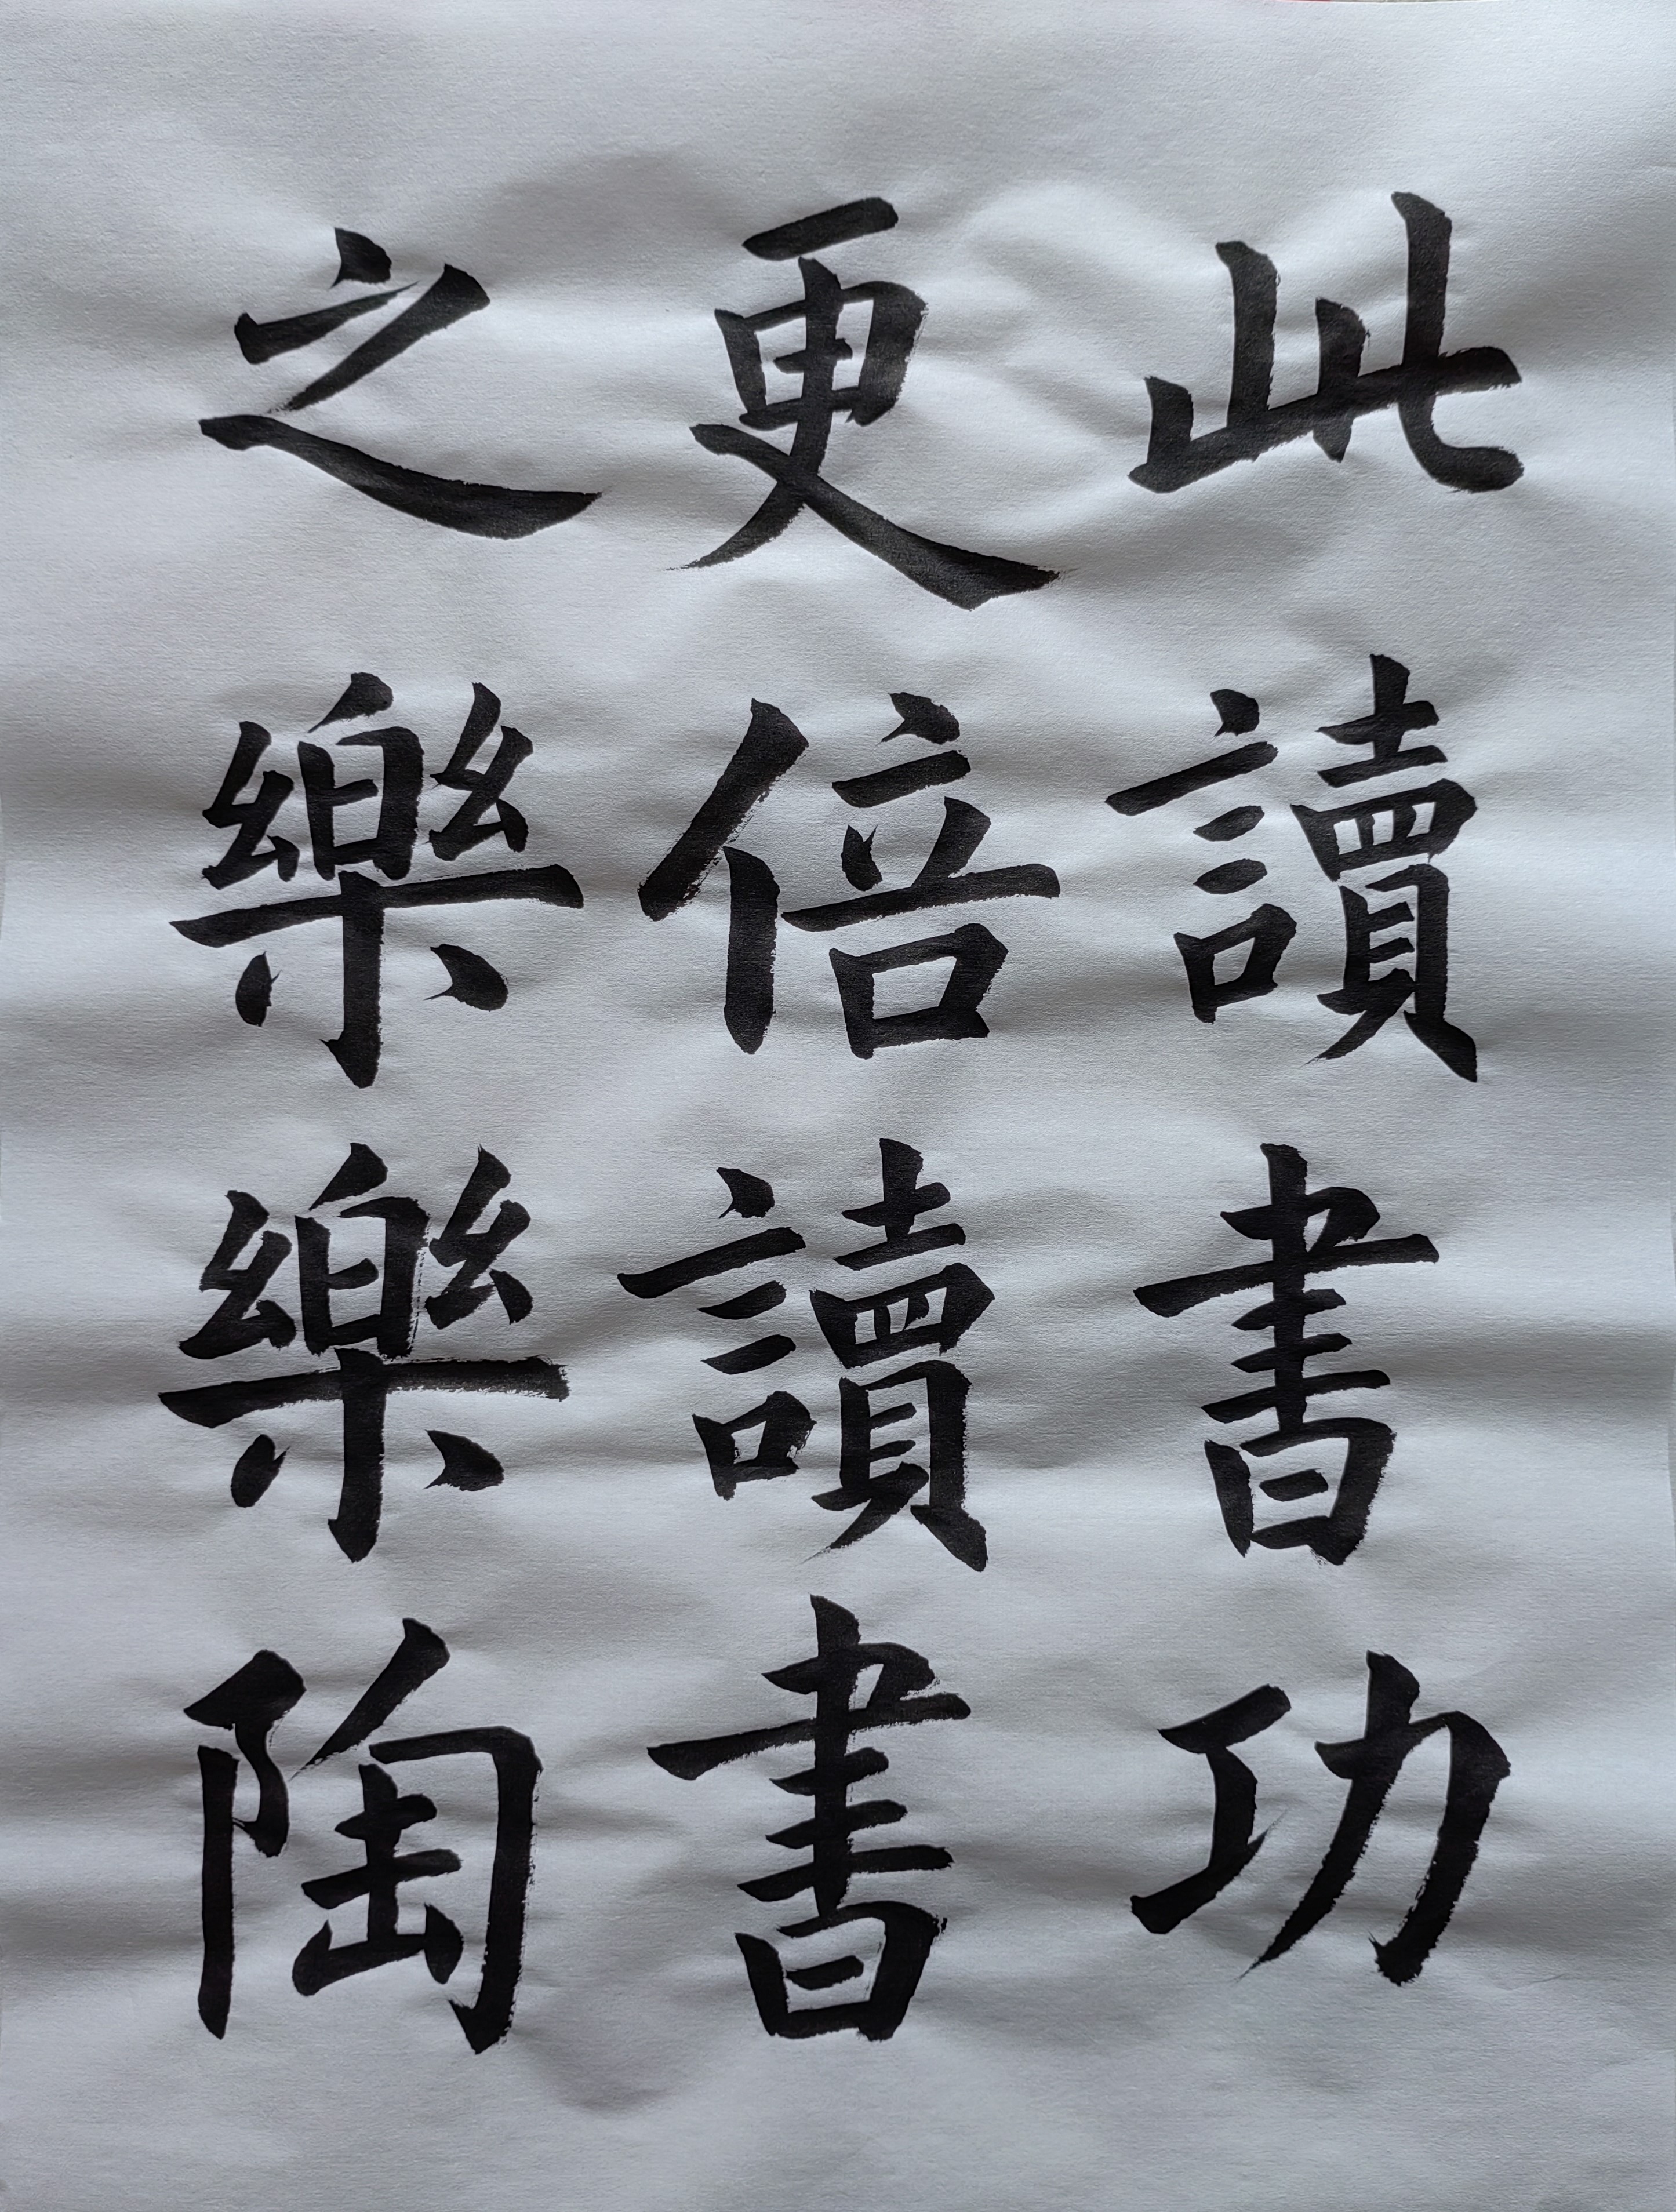 此讀書功
更倍讀書
之樂樂陶